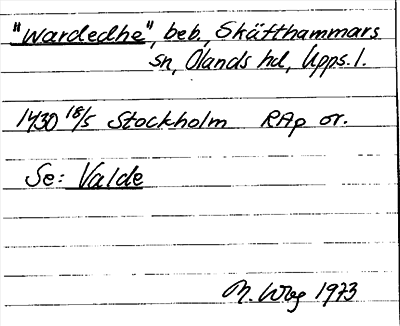 "wardedhe", beb, Skäfthammars
sn, Olands hd, Upps. l.
1430 18/5 Stockholm RAp or.
Se: Valde
M. Wbg 1973